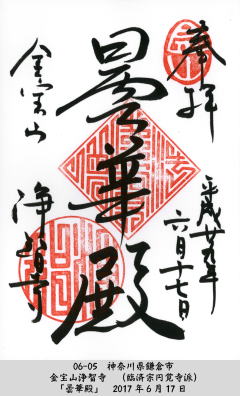 奉拝
平成廿九年
六月十七日
曇華殿
金宝山
浄智寺
06-05 神奈川県鎌倉市
金宝山浄智寺 (臨済宗円覚寺派)
「曇華殿」 2017年6月17日